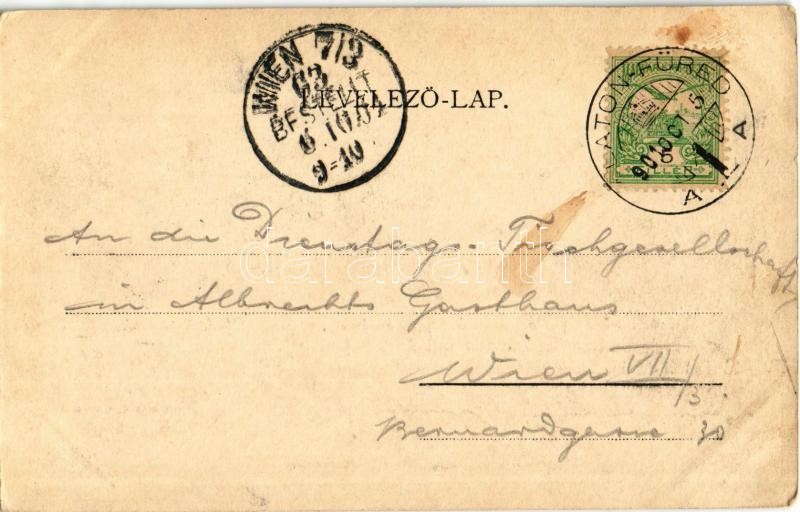 WIEN 7/3
63
BESTELLT
9-10
LEVELEZŐ-LAP.
BALATON-FÜRED
901 OCT 5
An die Dienstags-Tischgesellschaft
in Albrechts Gasthaus
Wien VII/3
Bernardgasse 30
darabanth